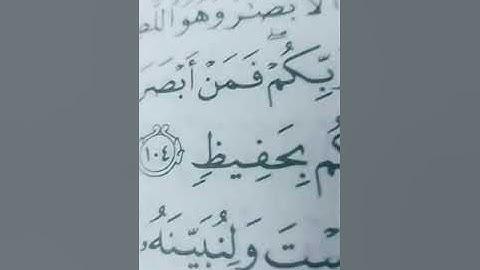 الْأَبْصَٰرَ وَهُوَ اللَّطِ
رَّبِّكُمْ ۖ فَمَنْ أَبْصَرَ
كُم بِحَفِيظٍ ١٠٤
سْتَ وَلِنُبَيِّنَهُۥ